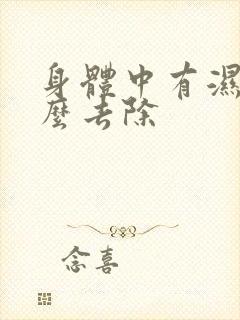 身體中有濕
麼去除
念喜